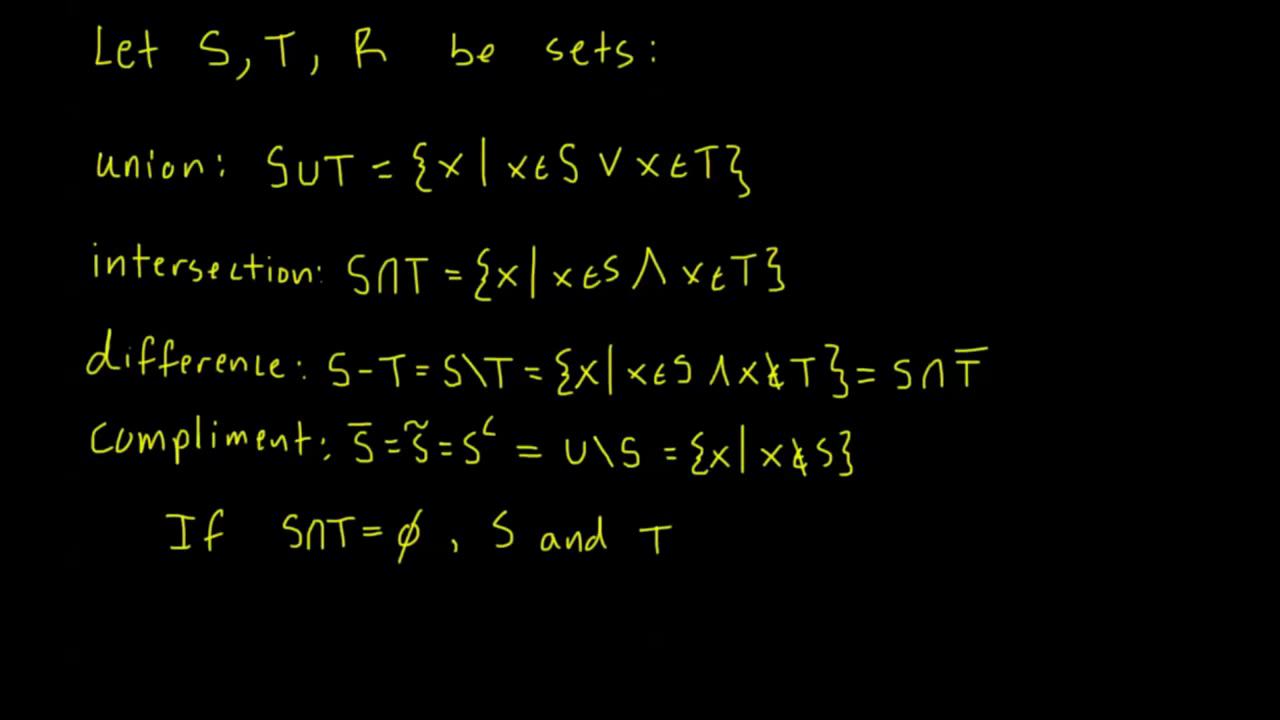 Let S, T, R be sets:
union: S∪T = {x | x∈S ∨ x∈T}
intersection: S∩T = {x | x∈S ∧ x∈T}
difference: S-T = S\T = {x | x∈S ∧ x∉T} = S∩T̅
compliment: S̅ = S̃ = Sᶜ = U\S = {x | x∉S}
If S∩T = ∅, S and T